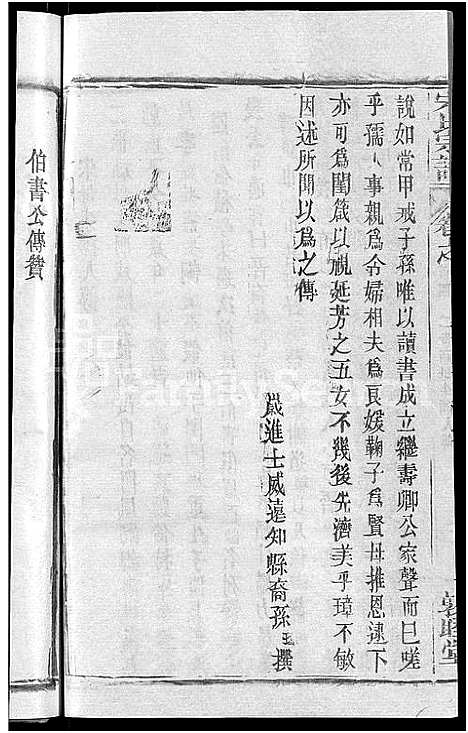 說如常甲戒子孫唯以讀書成立繼壽卿公家聲而已嗟
乎孺人事親爲令婦相夫爲良媛鞠子爲賢母推恩逮下
亦可爲閨箴以視延芳之五女不幾後先濟美乎璋不敏
因述所聞以爲之傳
歲進士威遠知縣裔孫玉撰
伯書公傳贊
敦睦堂